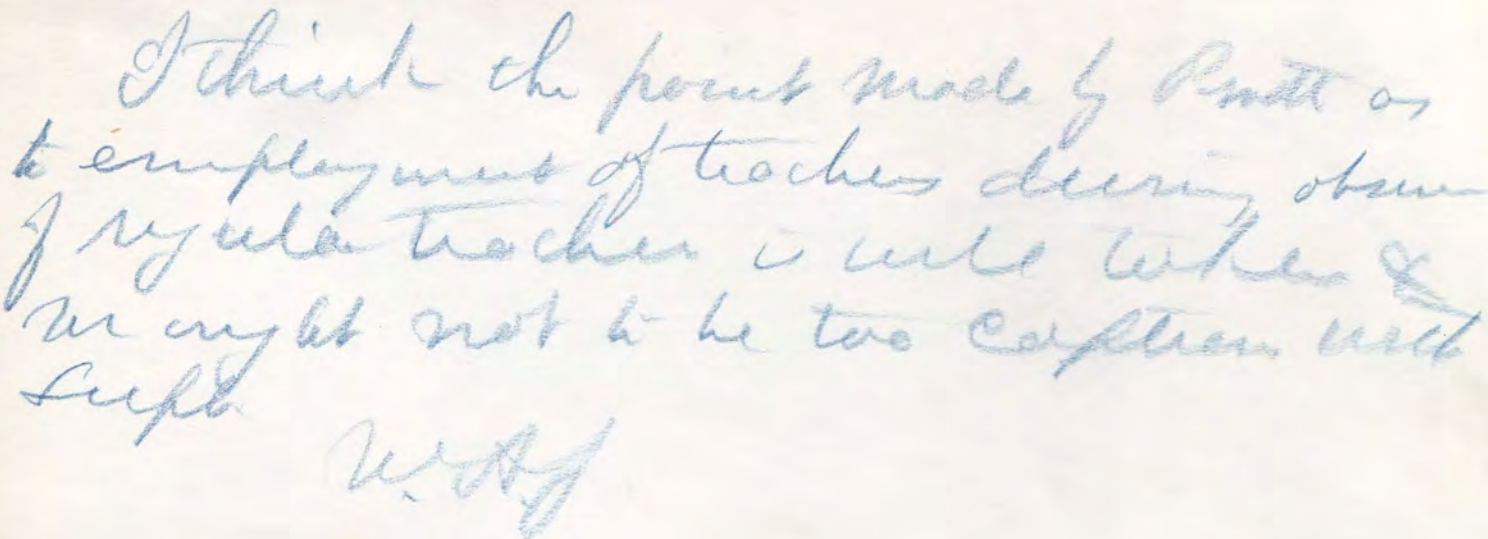 I think the point made by Pratt as
to employment of teachers during absence
of regular teacher is well taken &
we ought not to be too captious with
Supt.
W.A.J